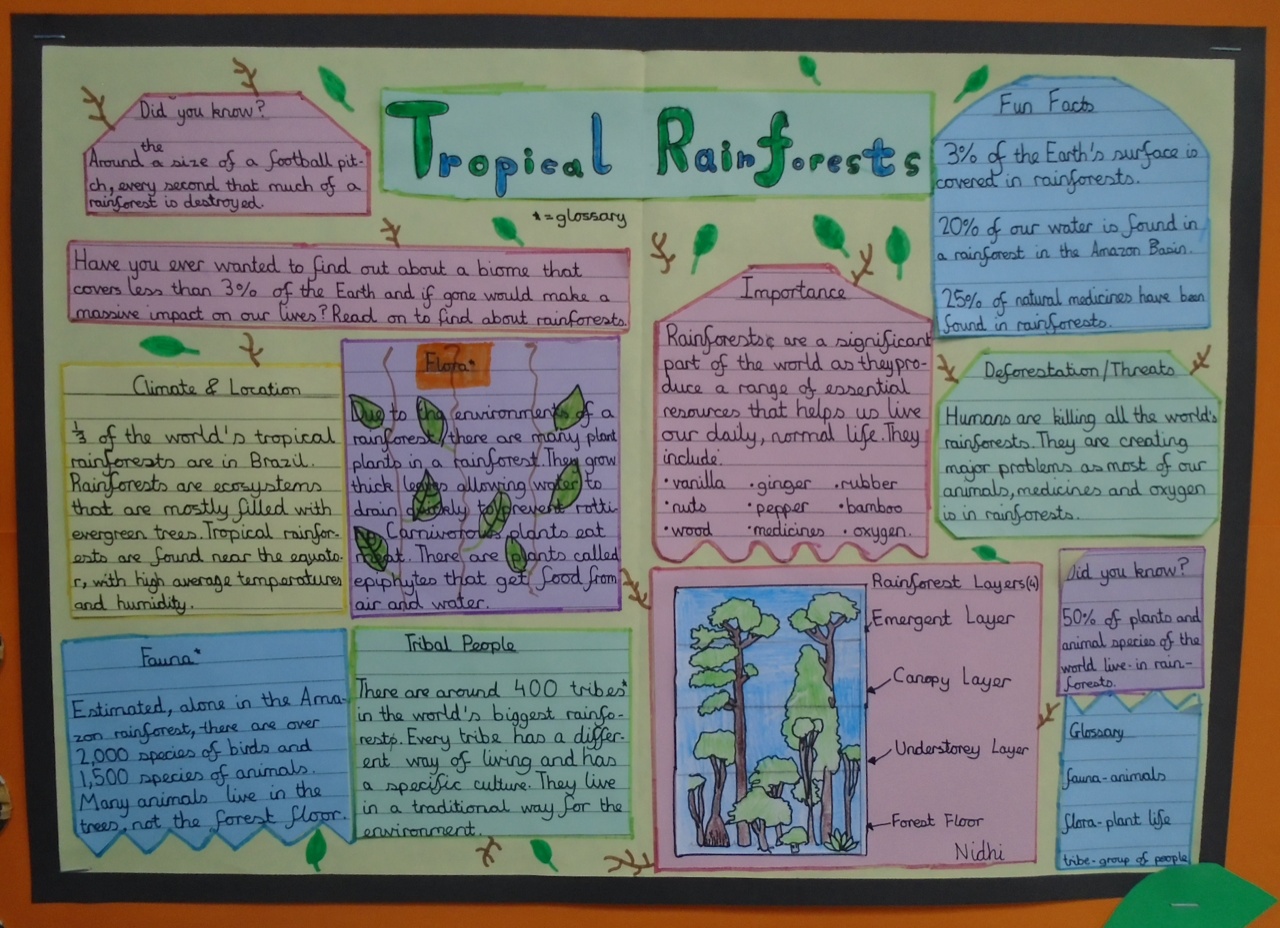 Tropical Rainforests
*=glossary
Did you know?
the
Around a size of a football pit-
ch, every second that much of a
rainforest is destroyed.
Have you ever wanted to find out about a biome that
covers less than 3% of the Earth and if gone would make a
massive impact on our lives? Read on to find about rainforests.
Climate & Location
1/3 of the world's tropical
rainforests are in Brazil.
Rainforests are ecosystems
that are mostly filled with
evergreen trees. Tropical rainfor-
ests are found near the equato-
r, with high average temperatures
and humidity.
Flora*
Due to the environments of a
rainforest, there are many plant
plants in a rainforest. They grow
thick leaves allowing water to
drain quickly to prevent rotti
Carnivorous plants eat
meat. There are plants called
epiphytes that get food from
air and water.
Fauna*
Estimated, alone in the Ama-
zon rainforest, there are over
2,000 species of birds and
1,500 species of animals.
Many animals live in the
trees, not the forest floor.
Tribal People
There are around 400 tribes*
in the world's biggest rainfo-
rests. Every tribe has a differ-
ent way of living and has
a specific culture. They live
in a traditional way for the
environment.
Importance
Rainforests are a significant
part of the world as they pro-
duce a range of essential
resources that helps us live
our daily, normal life. They
include:
•vanilla •ginger •rubber
•nuts •pepper •bamboo
•wood •medicines •oxygen.
Rainforest Layers(4)
Emergent Layer
Canopy Layer
Understorey Layer
Forest Floor
Nidhi
Fun Facts
3% of the Earth's surface is
covered in rainforests.
20% of our water is found in
a rainforest in the Amazon Basin.
25% of natural medicines have been
found in rainforests.
Deforestation/Threats
Humans are killing all the world's
rainforests. They are creating
major problems as most of our
animals, medicines and oxygen
is in rainforests.
Did you know?
50% of plants and
animal species of the
world live in rain-
forests.
Glossary
fauna-animals
flora-plant life
tribe-group of people